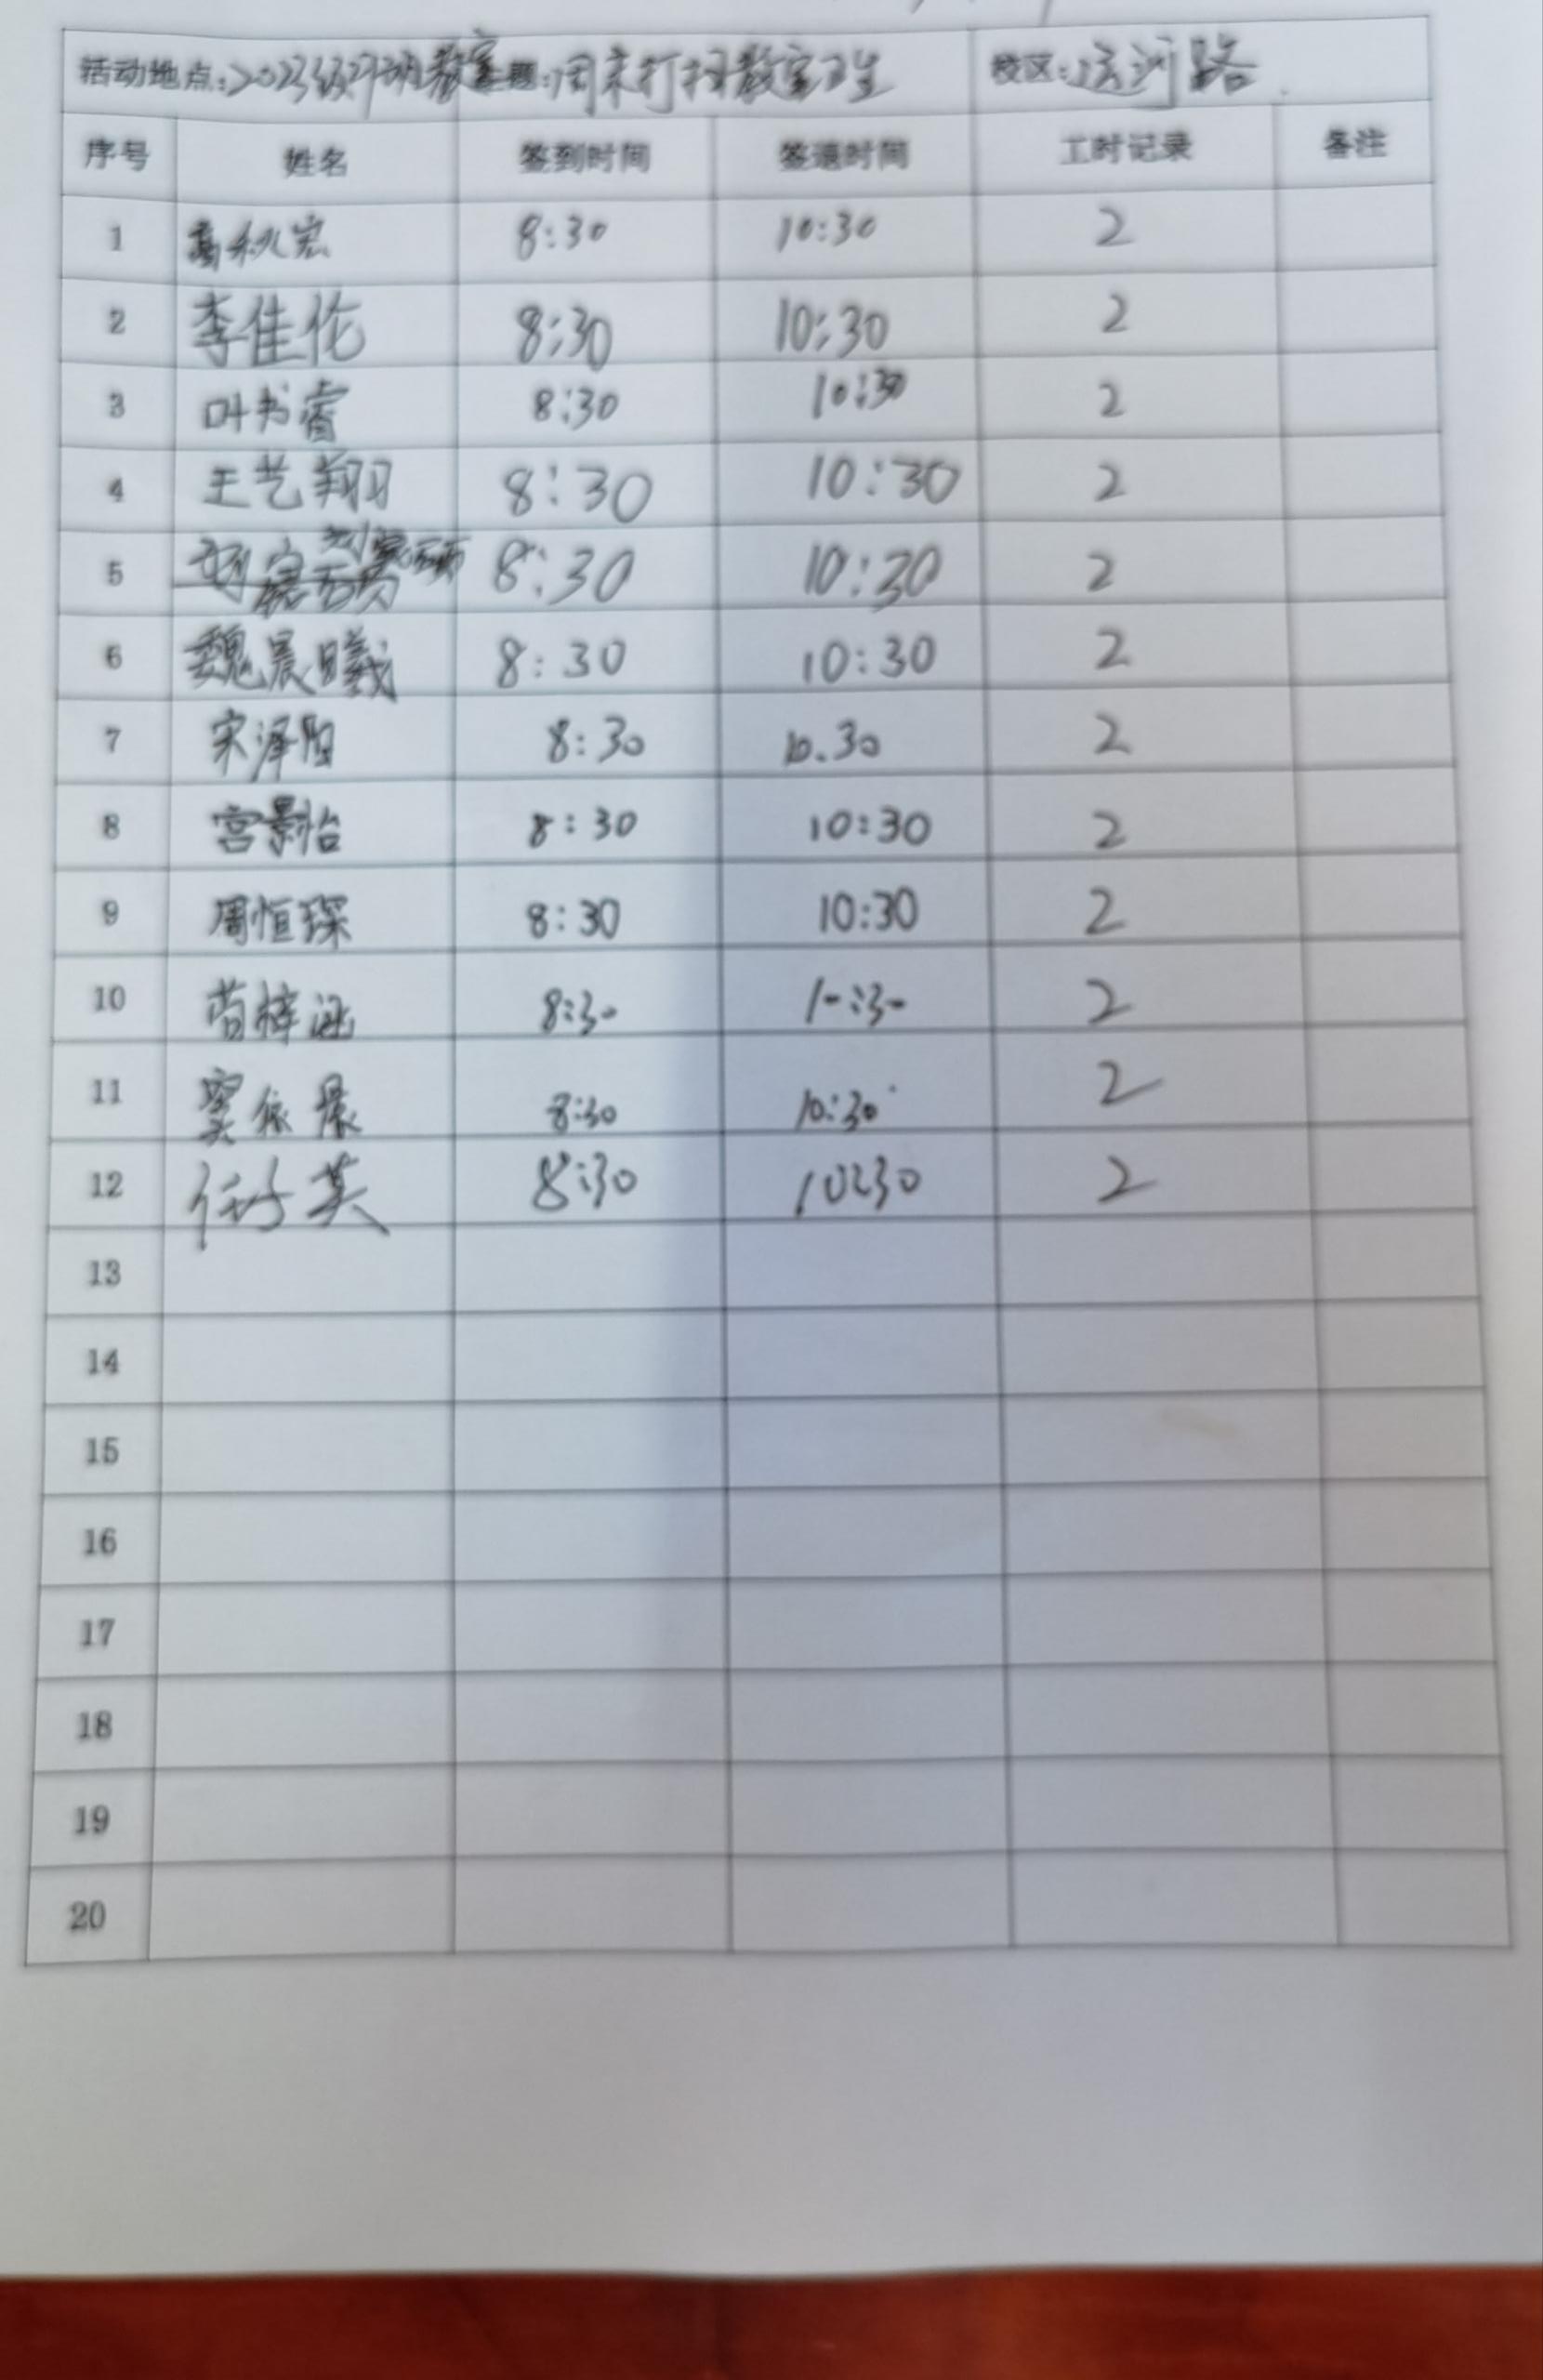 活动地点:2023级 班教室 主题:周末打扫教室卫生 校区:运河路
序号 姓名 签到时间 签退时间 工时记录 备注
1 高秋宏 8:30 10:30 2
2 李佳伦 8:30 10:30 2
3 叶书睿 8:30 10:30 2
4 王艺翔 8:30 10:30 2
5 8:30 10:30 2
6 魏晨曦 8:30 10:30 2
7 宋泽阳 8:30 10.30 2
8 宫景怡 8:30 10:30 2
9 周恒琛 8:30 10:30 2
10 苗梓涵 8:30 10:30 2
11 窦依晨 8:30 10:30 2
12 英 8:30 10:30 2
13
14
15
16
17
18
19
20